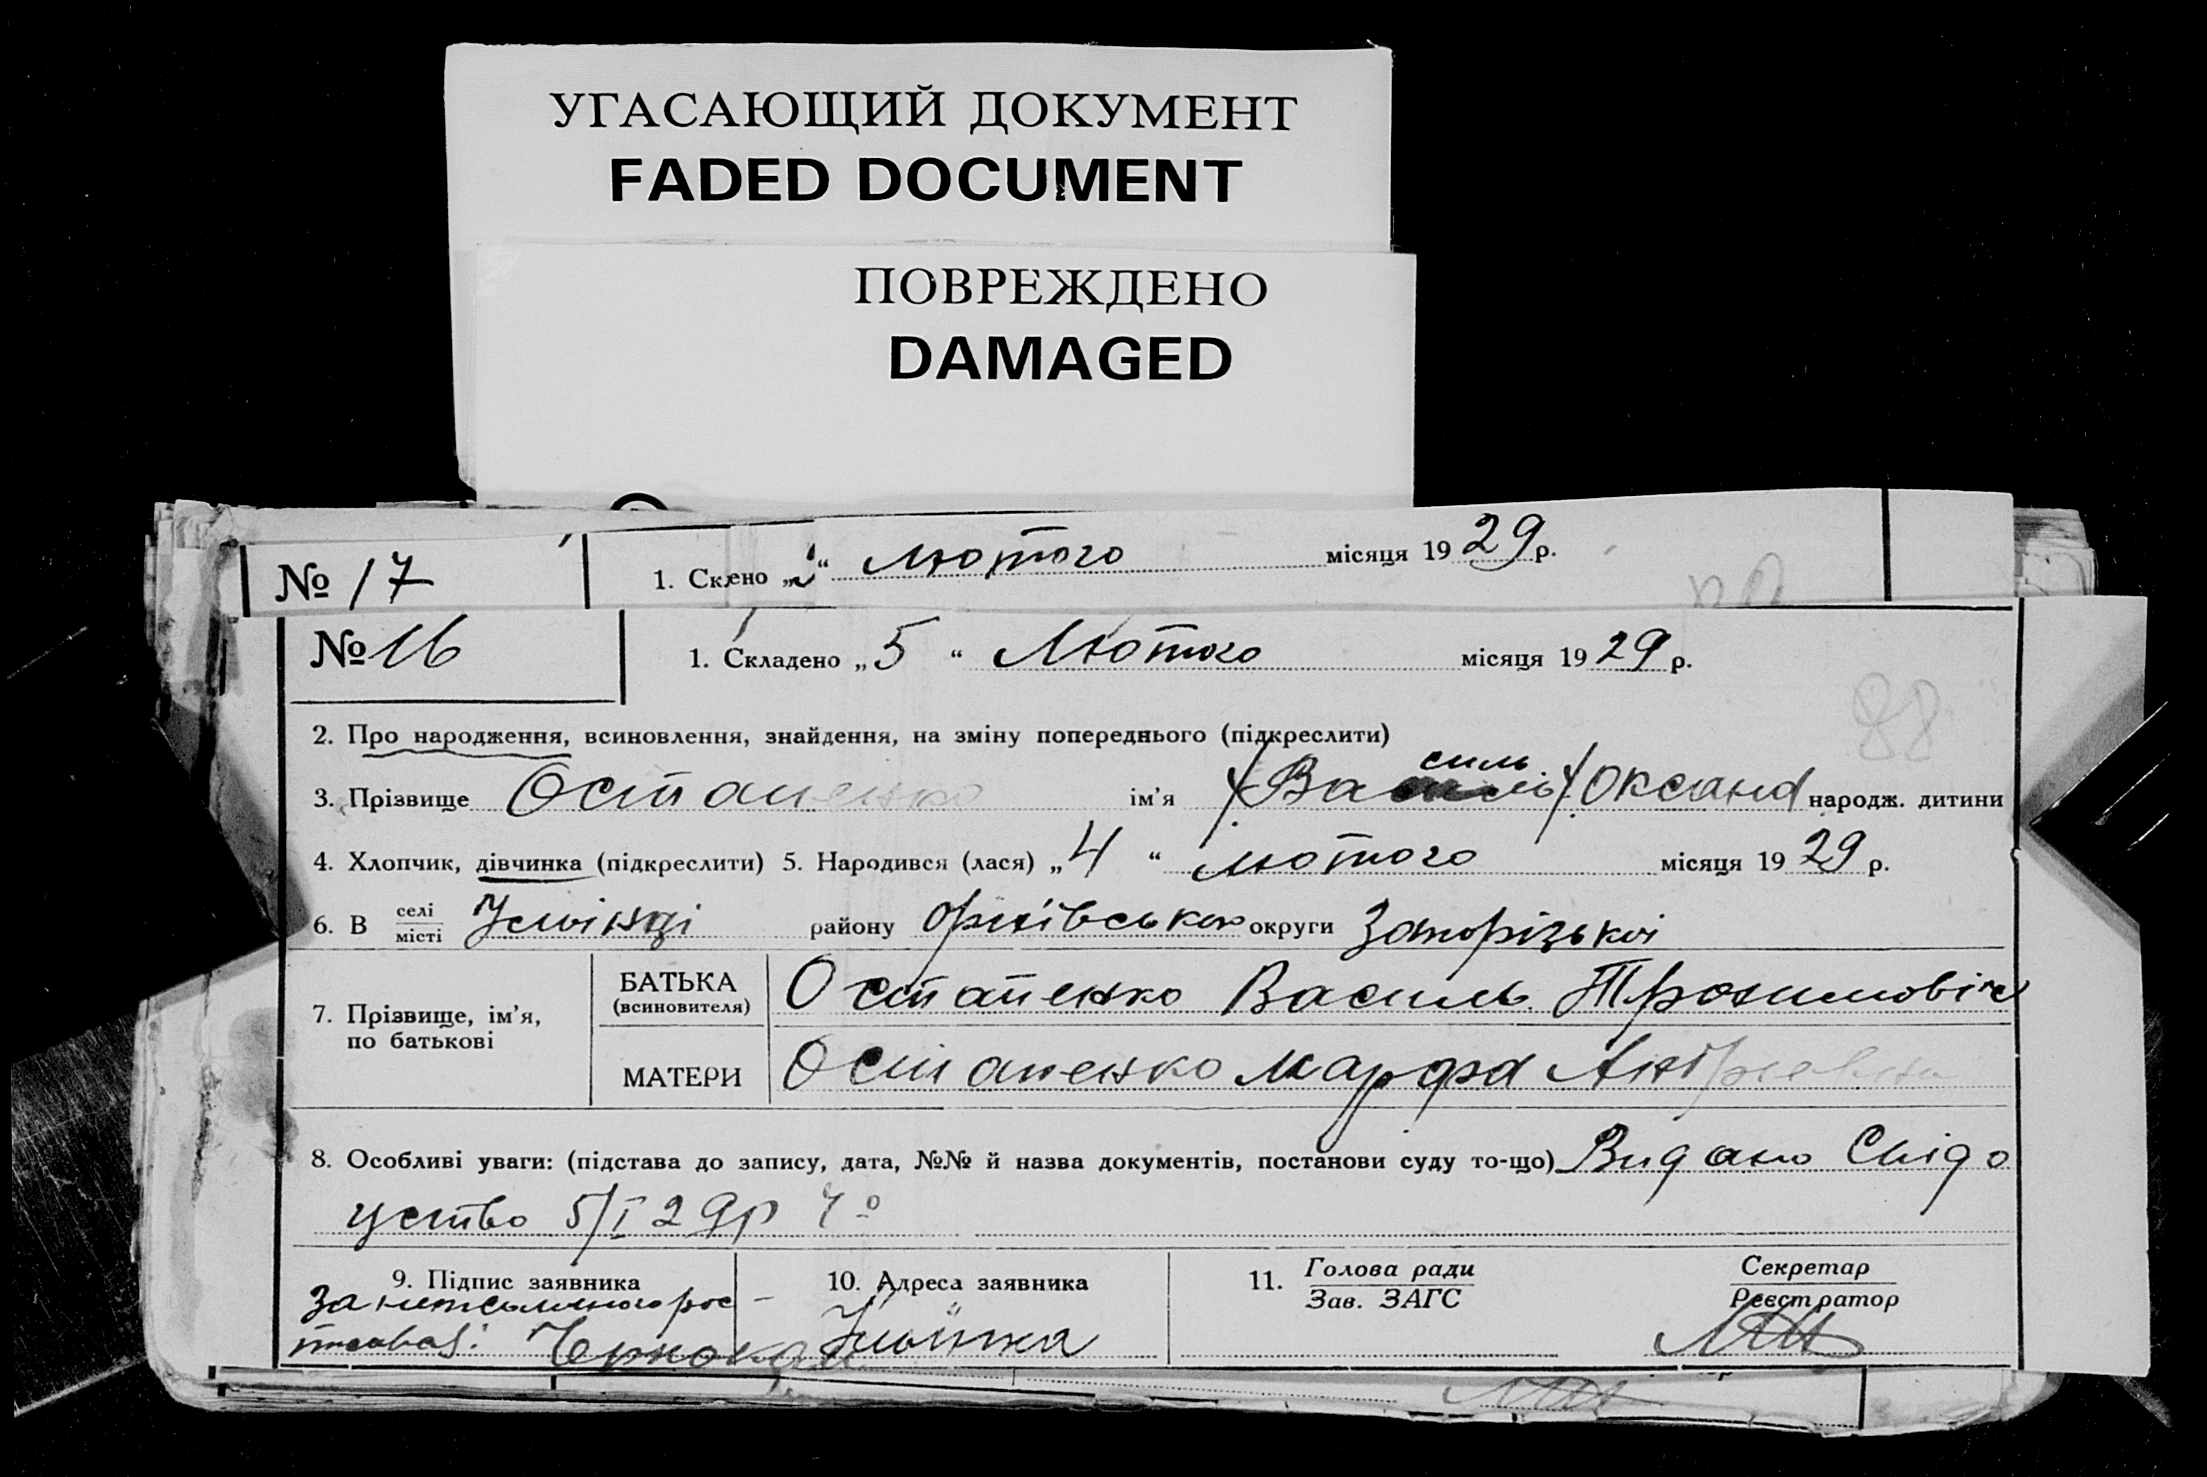 УГАСАЮЩИЙ ДОКУМЕНТ
FADED DOCUMENT
ПОВРЕЖДЕНО
DAMAGED
№ 17 1. Склено „ “ лютого місяця 19 29 р.
№ 16 1. Складено „ 5 “ Лютого місяця 19 29 р.
88
2. Про народження, всиновлення, знайдення, на зміну попереднього (підкреслити)
силь
3. Прізвище Остапенко ім'я /Ва / Оксана народж. дитини
4. Хлопчик, дівчинка (підкреслити) 5. Народився (лася) „ 4 “ лютого місяця 19 29 р.
6. В селі місті району округи Запорізькоі
7. Прізвище, ім'я, по батькові
БАТЬКА (всиновителя) Остапенко Василь
МАТЕРИ Остапенко Марфа
8. Особливі уваги: (підстава до запису, дата, №№ й назва документів, постанови суду то-що) Видано Свідо
цство 5/I 29р
9. Підпис заявника 10. Адреса заявника 11. Голова ради Зав. ЗАГС Секретар Реєстратор
За